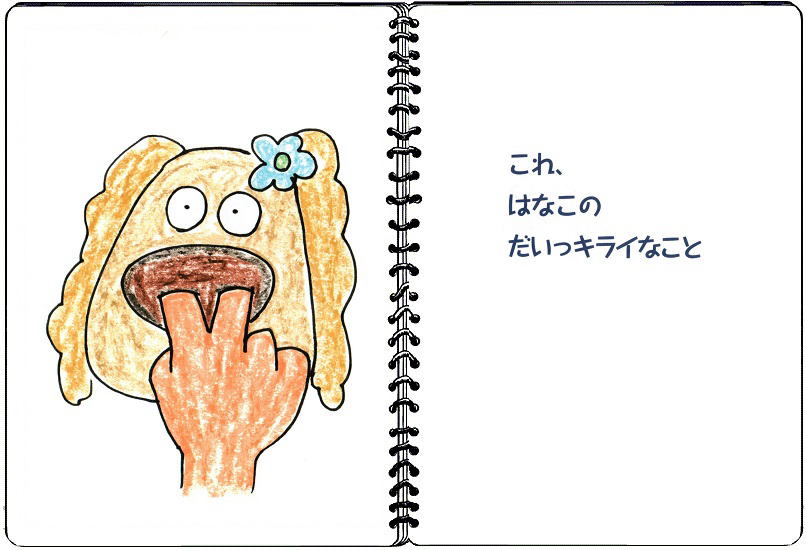 これ、
はなこの
だいっキライなこと